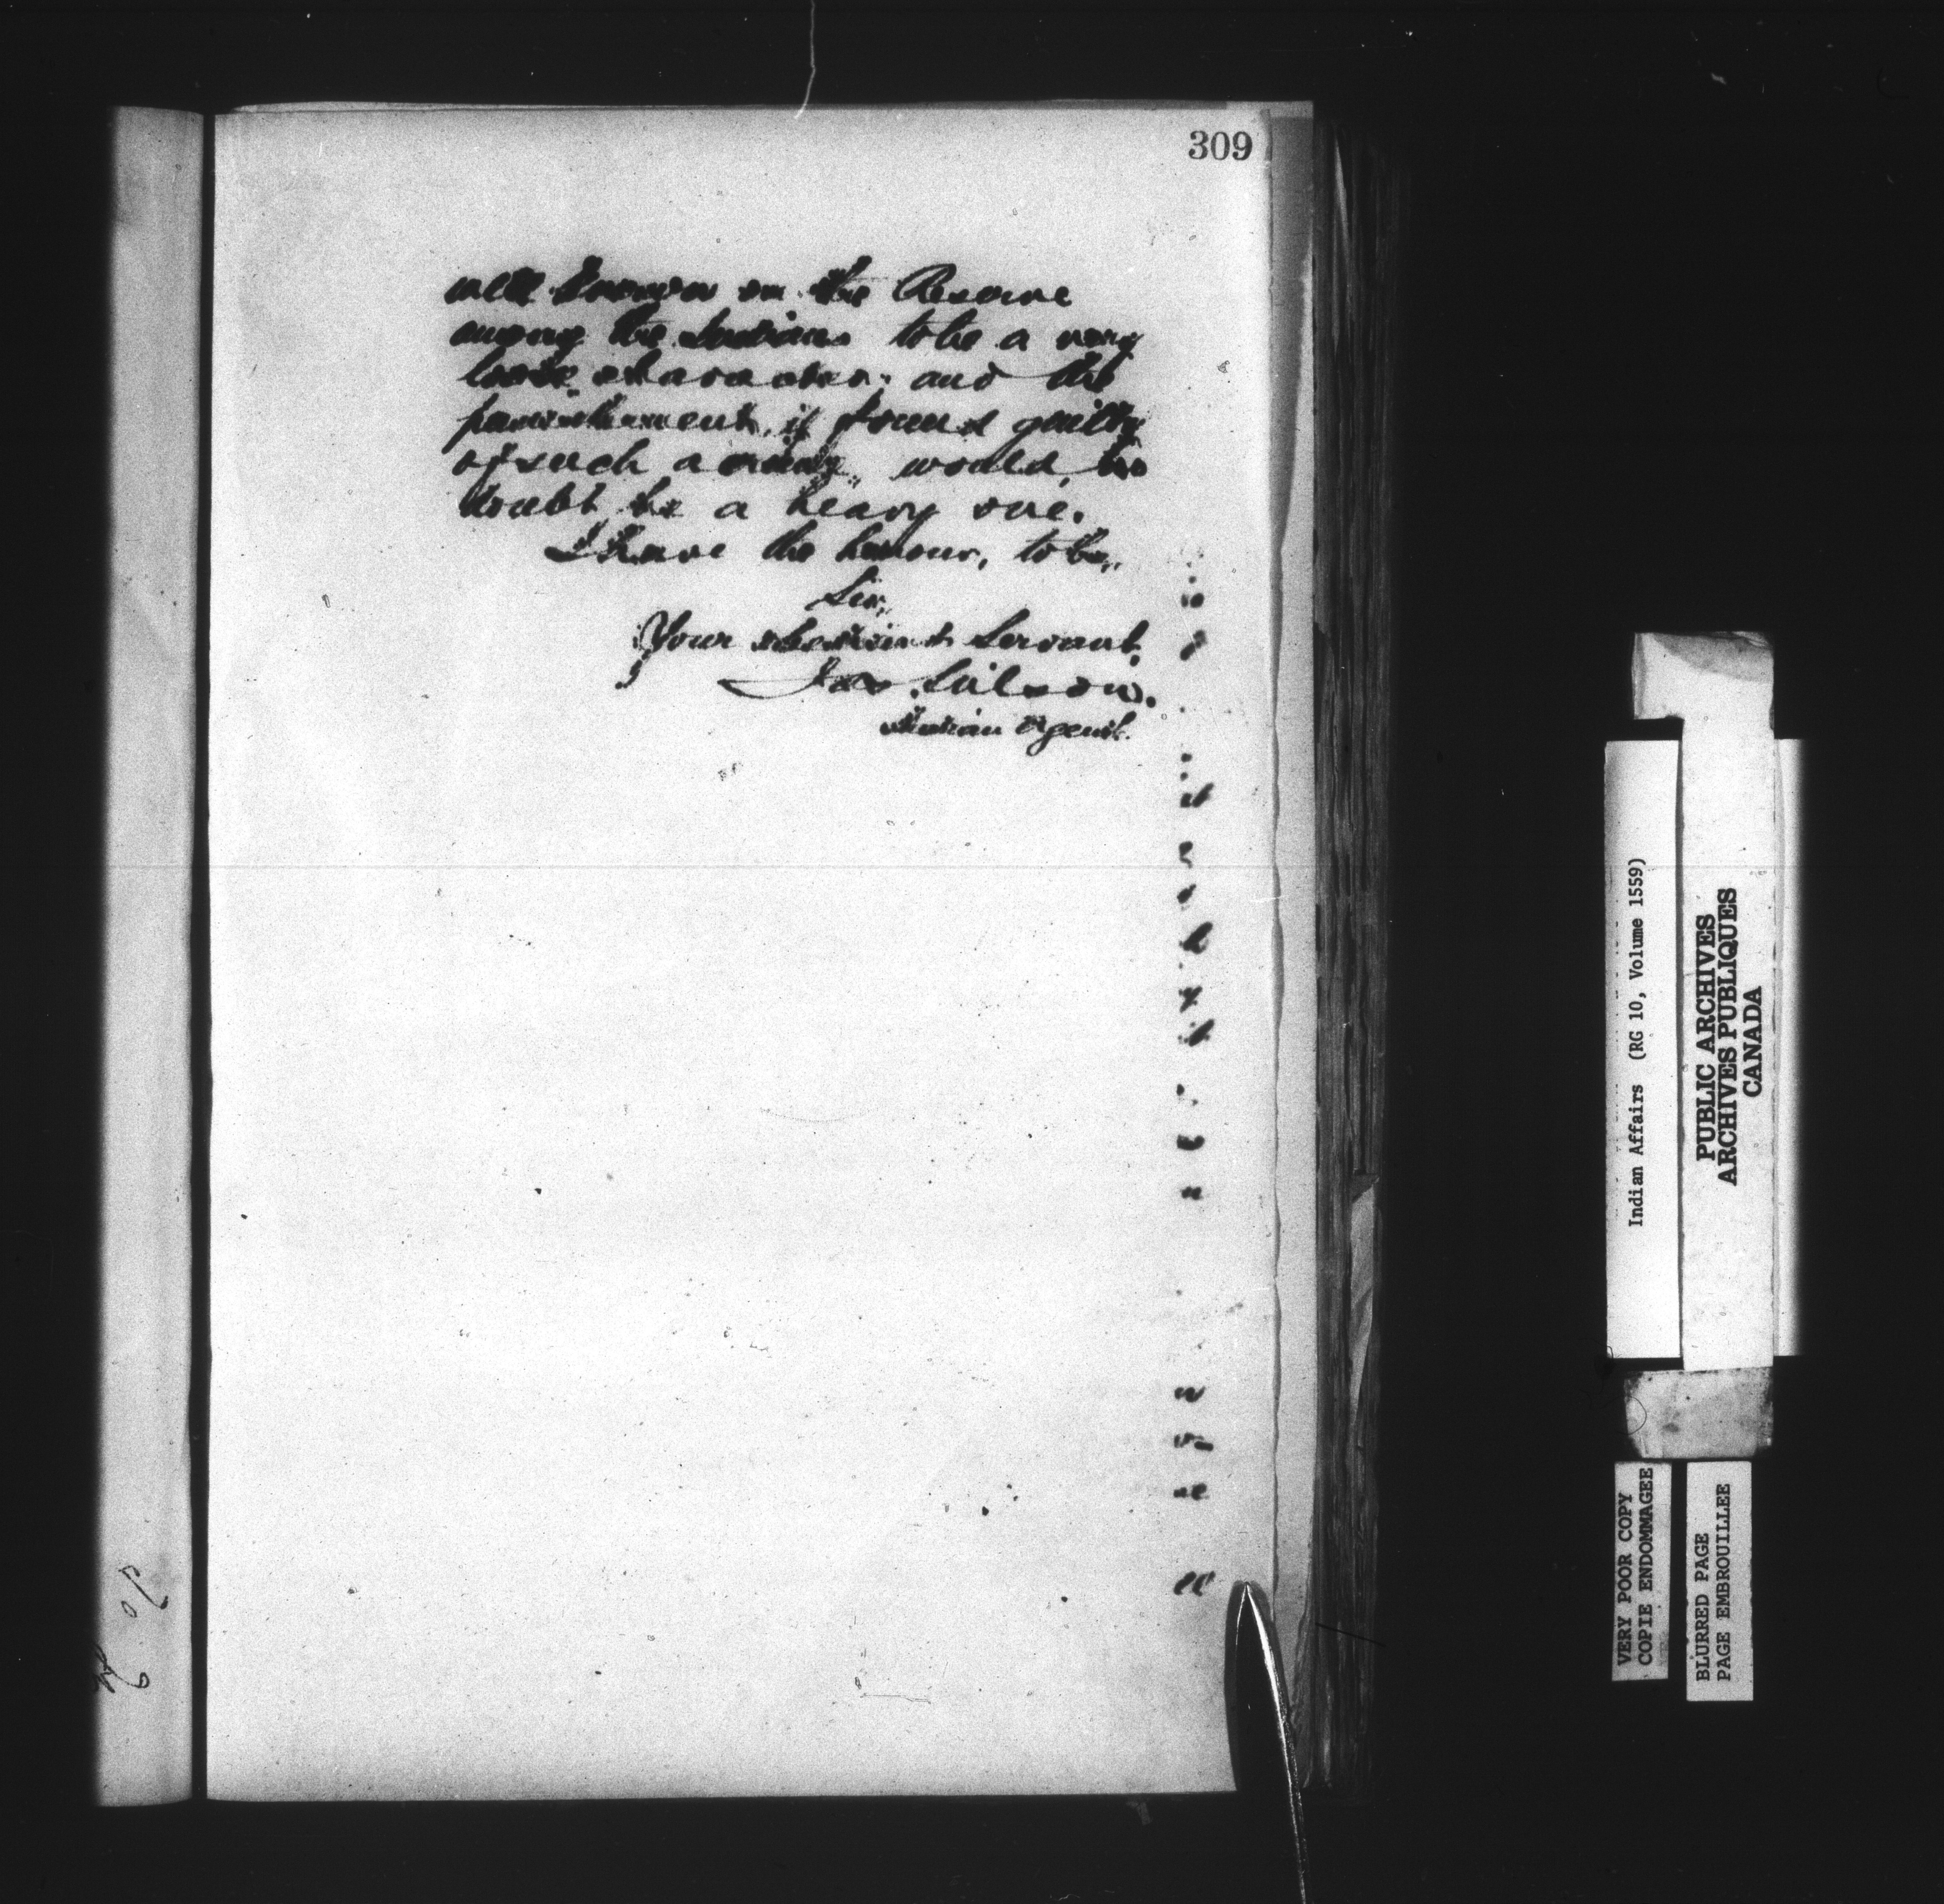 309
well known on the Reserve
among the Indians to be a very
loose character; and the
punishment, if found guilty
of such a crime, would, no
doubt be a heavy one.
I have the honour, to be,
Sir,
Your obedient Servant,
Jas. Wilson.
Indian Agent.
Indian Affairs (RG 10, Volume 1559)
PUBLIC ARCHIVES
ARCHIVES PUBLIQUES
CANADA
VERY POOR COPY
COPIE ENDOMMAGEE
BLURRED PAGE
PAGE EMBROUILLEE